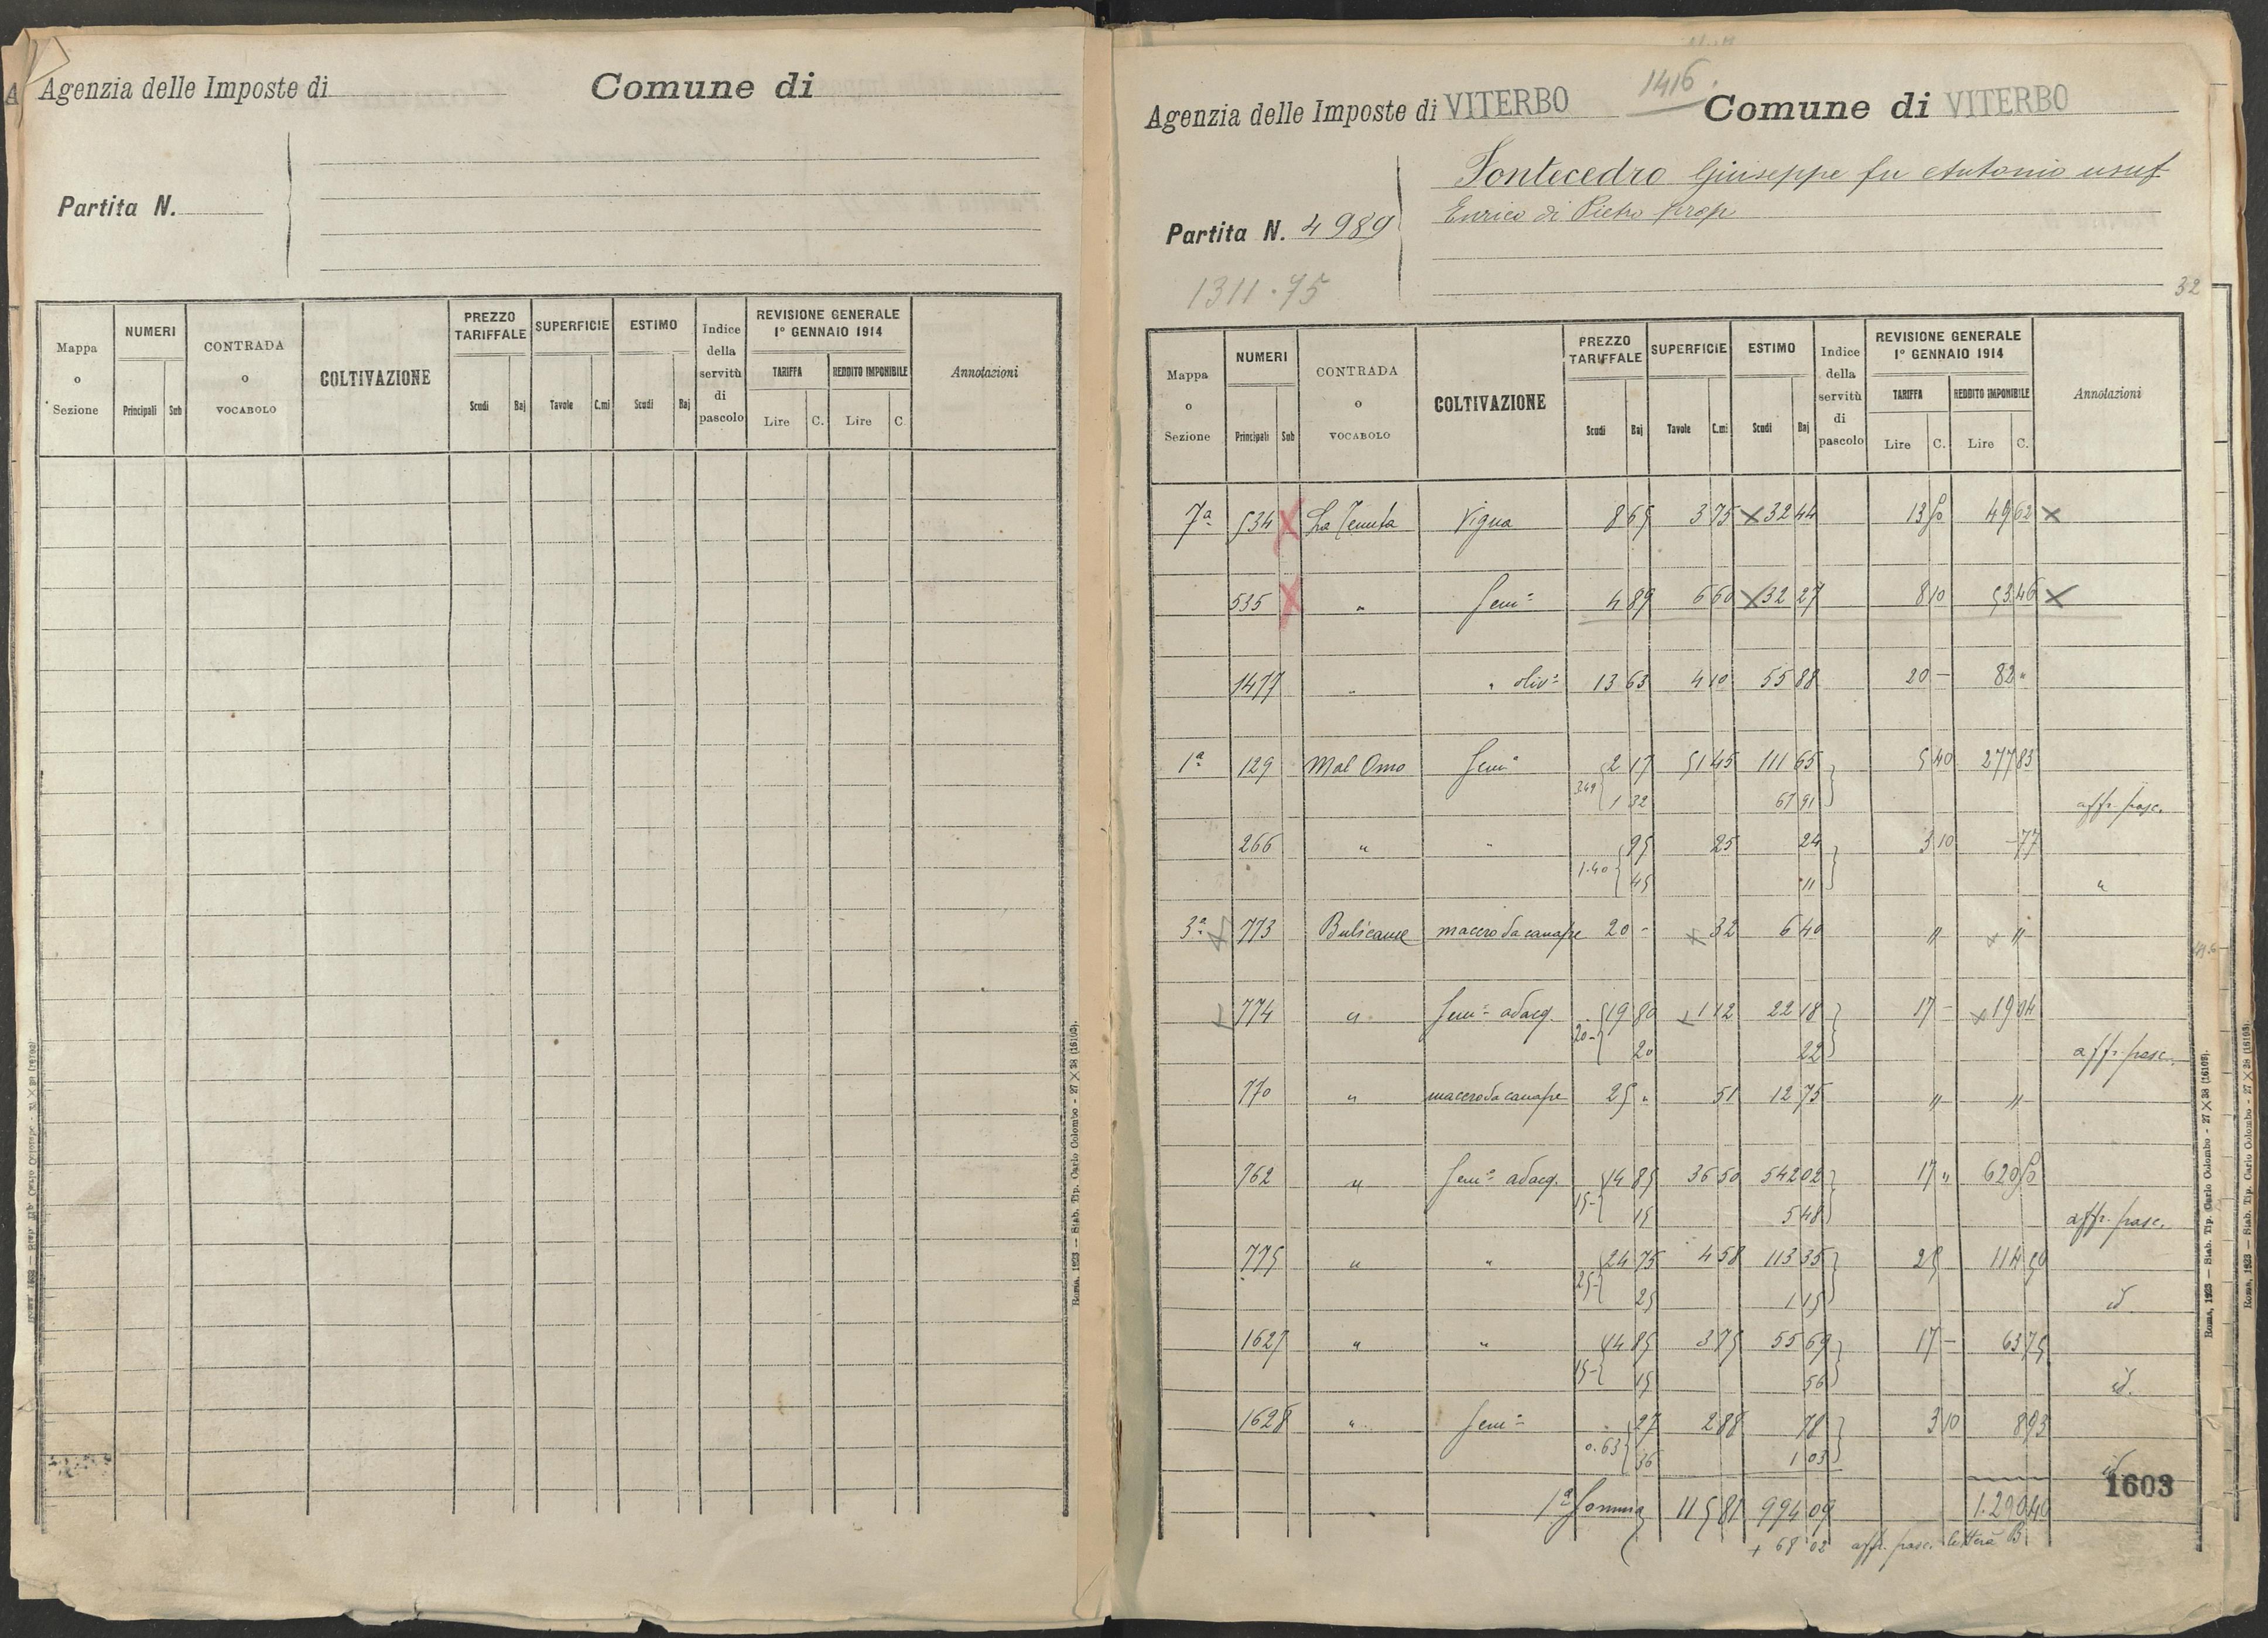 Agenzia delle Imposte di Comune di
Partita N.
Mappa o Sezione NUMERI Principali Sub CONTRADA o VOCABOLO COLTIVAZIONE PREZZO TARIFFALE Scudi Baj SUPERFICIE Tavole C.mi ESTIMO Scudi Baj Indice della servitù di pascolo REVISIONE GENERALE 1° GENNAIO 1914 TARIFFA Lire C. REDDITO IMPONIBILE Lire C. Annotazioni
Roma, 1923 — Stab. Tip. Carlo Colombo - 27 X 38 (16193).
1416.
Agenzia delle Imposte di VITERBO Comune di VITERBO
Fontecedro Giuseppe fu Antonio usuf
Enrico di Pietro prop
Partita N. 4989
1311.75
32
Mappa o Sezione NUMERI Principali Sub CONTRADA o VOCABOLO COLTIVAZIONE PREZZO TARIFFALE Scudi Baj SUPERFICIE Tavole C.mi ESTIMO Scudi Baj Indice della servitù di pascolo REVISIONE GENERALE 1° GENNAIO 1914 TARIFFA Lire C. REDDITO IMPONIBILE Lire C. Annotazioni
7ª 534 X La Tenuta Vigna 8 65 3 75 X 32 44 13 50 49 62 X
535 X " Sem° 4 89 6 60 X 32 27 8 10 53 46 X
1477 " " oliv° 13 63 4 10 55 88 20 - 82 "
1ª 129 Mal Omo Sem° 2 17 51 45 111 65 5 40 277 83
3 49 1 32 67 91 aff. pasc.
266 " " 95 25 24 3 10 - 77
1.40 45 11 "
3ª X 773 Bulicame macero da canape 20 - X 32 6 40 " X "
X 774 " Sem° adacq. 19 80 X 1 12 22 18 17 - X 19 04
20 - 20 22 aff. pasc.
770 " macero da canape 25 " 51 12 75 " "
762 " Sem° adacq. 14 85 36 50 542 02 17 " 620 50
15 - 15 5 48 aff. pasc.
775 " " 24 75 4 58 113 35 25 114 50
25 - 25 1 15 id.
1627 " " 14 85 3 75 55 69 17 - 63 75
15 - 15 56 id.
1628 " Sem° 27 2 88 78 3 10 8 93
0.63 36 1 03 id
1603
1ª Somma 115 81 994 09 1.290 40
+ 68 02 aff. pasc. lettera B.
Roma, 1923 — Stab. Tip. Carlo Colombo - 27 X 38 (16193).
Roma, 1923 — Stab. Tip. Carlo Colombo - 27 X 38 (16193)